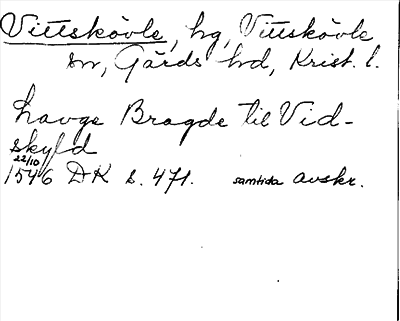 Vittskövle, hg, Vittskövle
sn, Gärds hd, Krist. l.
havge Bragde til Vid-
skyld
22/10
1546 DK s. 471. samtida avskr.